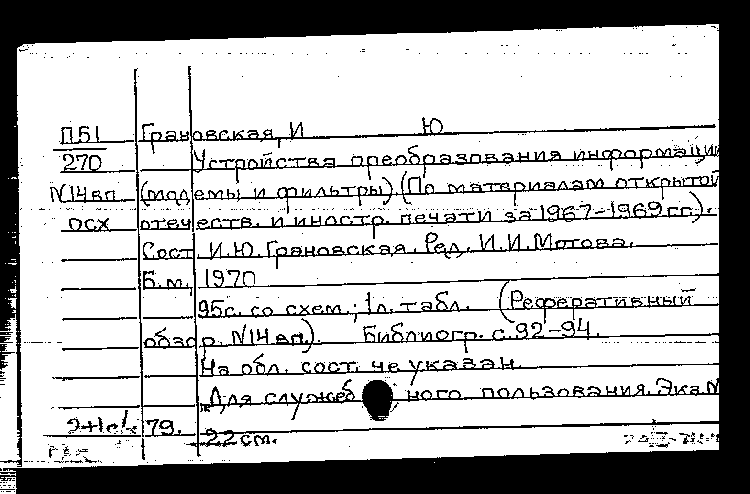 П51 Грановская, И Ю
270 Устройства преобразования информации
N14вп (модемы и фильтры). (По материалам открытой
осх отечеств. и иностр. печати за 1967-1969 гг.).
Сост. И.Ю. Грановская. Ред. И.И. Мотова.
Б.м., 1970
95с. со схем.; 1л. табл. (Реферативный
обзор. N14 вп). Библиогр. с.92-94.
На обл. сост. не указан.
Для служебного пользования. Экз.N
79.
22 см.